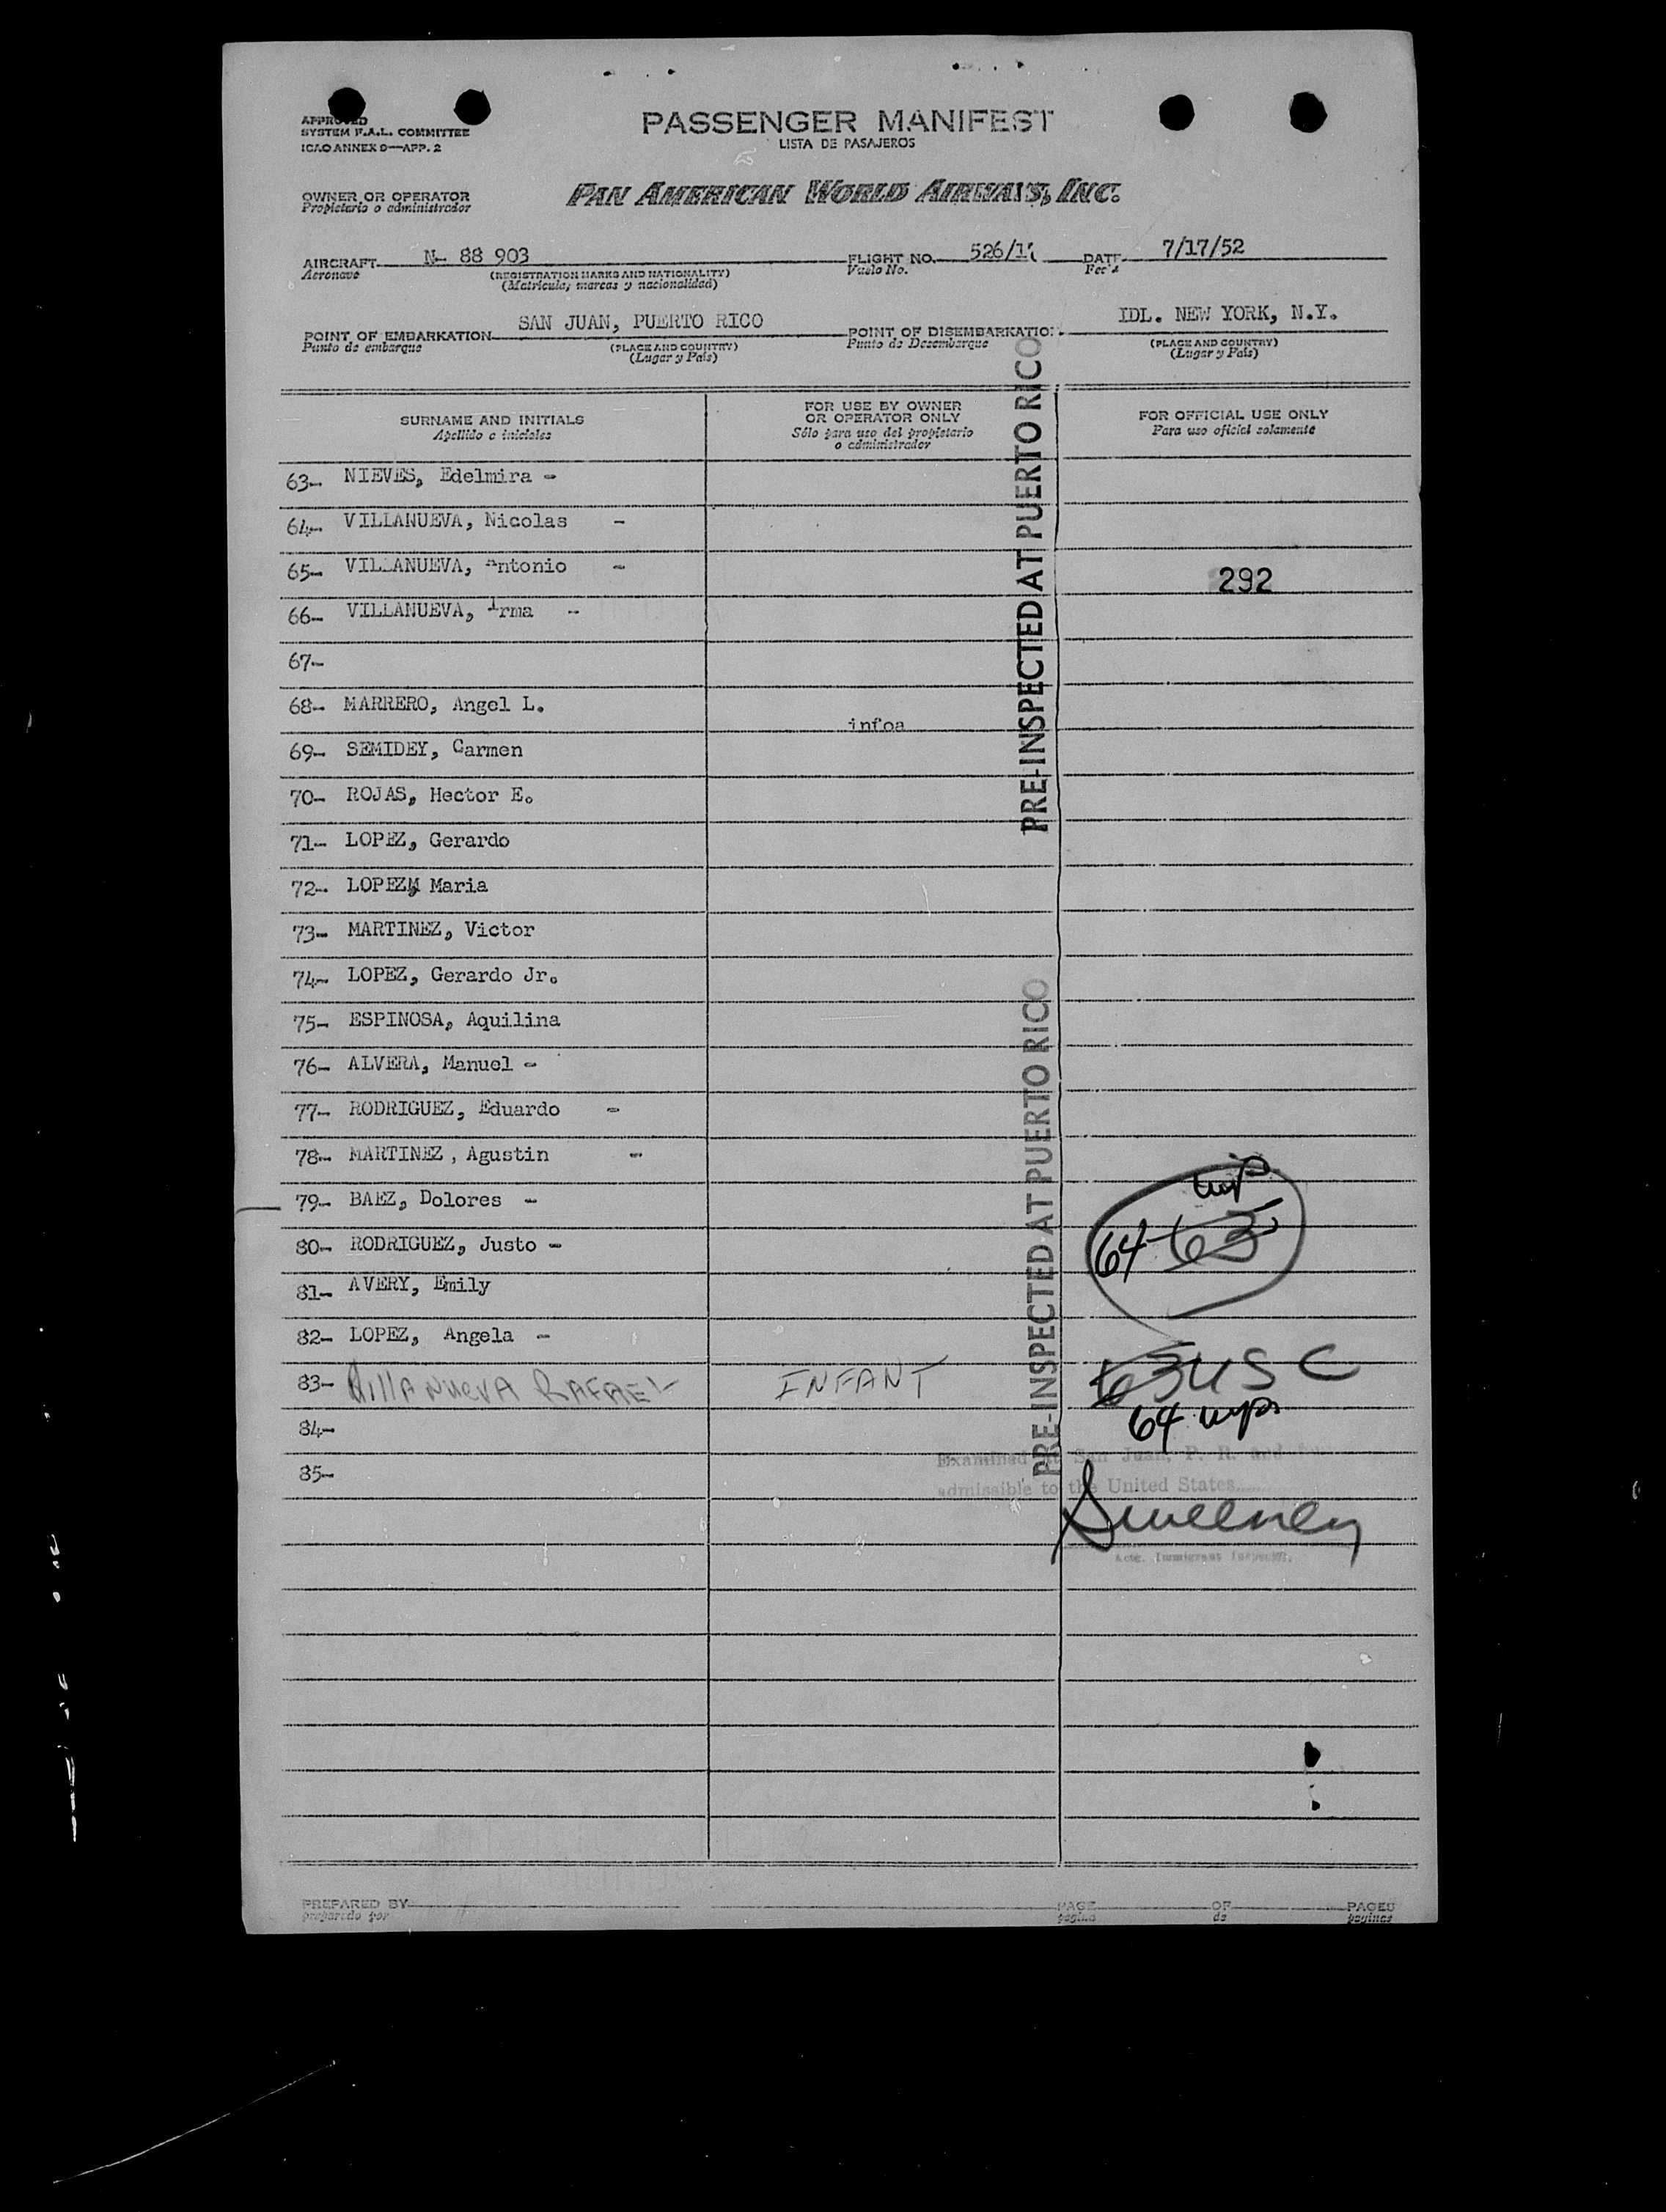 APPROVED
SYSTEM F.A.L. COMMITTEE
ICAO ANNEX 9—APP. 2
PASSENGER MANIFEST
LISTA DE PASAJEROS
OWNER OR OPERATOR
Propietario o administrador
PAN AMERICAN WORLD AIRWAYS, INC.
AIRCRAFT N- 88 903 FLIGHT NO. 526/1 DATE 7/17/52
Aeronave (REGISTRATION MARKS AND NATIONALITY) Vuelo No. Fecha
(Matricula, marcas y nacionalidad)
POINT OF EMBARKATION SAN JUAN, PUERTO RICO POINT OF DISEMBARKATION IDL. NEW YORK, N.Y.
Punto de embarque (PLACE AND COUNTRY) Punto de Desembarque (PLACE AND COUNTRY)
(Lugar y País) (Lugar y País)
SURNAME AND INITIALS
Apellido e iniciales
FOR USE BY OWNER
OR OPERATOR ONLY
Sólo para uso del propietario
o administrador
FOR OFFICIAL USE ONLY
Para uso oficial solamente
63- NIEVES, Edelmira -
64- VILLANUEVA, Nicolas -
65- VILLANUEVA, Antonio - 292
66- VILLANUEVA, Irma -
67-
68- MARRERO, Angel L.
69- SEMIDEY, Carmen
70- ROJAS, Hector E.
71- LOPEZ, Gerardo
72- LOPEZ, Maria
73- MARTINEZ, Victor
74- LOPEZ, Gerardo Jr.
75- ESPINOSA, Aquilina
76- ALVERA, Manuel -
77- RODRIGUEZ, Eduardo -
78- MARTINEZ, Agustin -
79- BAEZ, Dolores -
80- RODRIGUEZ, Justo - 64 63
81- AVERY, Emily
82- LOPEZ, Angela -
83- VillANUEVA RAFAEL- INFANT 63 USC
84- 64
85-
PRE-INSPECTED AT PUERTO RICO
PRE-INSPECTED AT PUERTO RICO
Examined at San Juan, P. R. and
admissible to the United States
Sweeney
Actg. Immigrant Inspector.
PREPARED BY PAGE OF PAGES
preparado por página de páginas